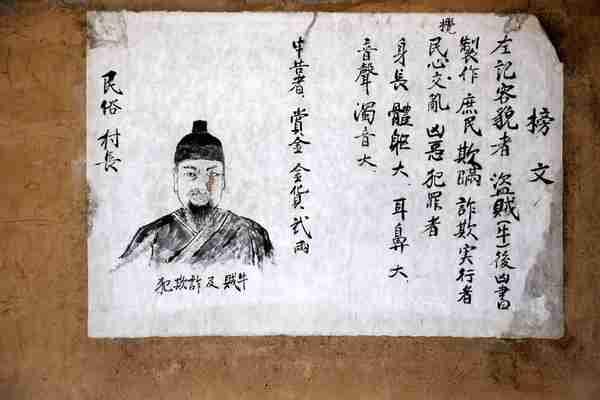 榜文
左記容貌者 盜賊(牛)後凶書
製作 庶民欺瞞 詐欺実行者
攪
民心文亂 凶惡犯罪者
身長 體躯大、耳鼻大、
音聲 濁音大、
申告者、賞金 金貨 弐兩
牛賊及詐欺犯
民俗村長